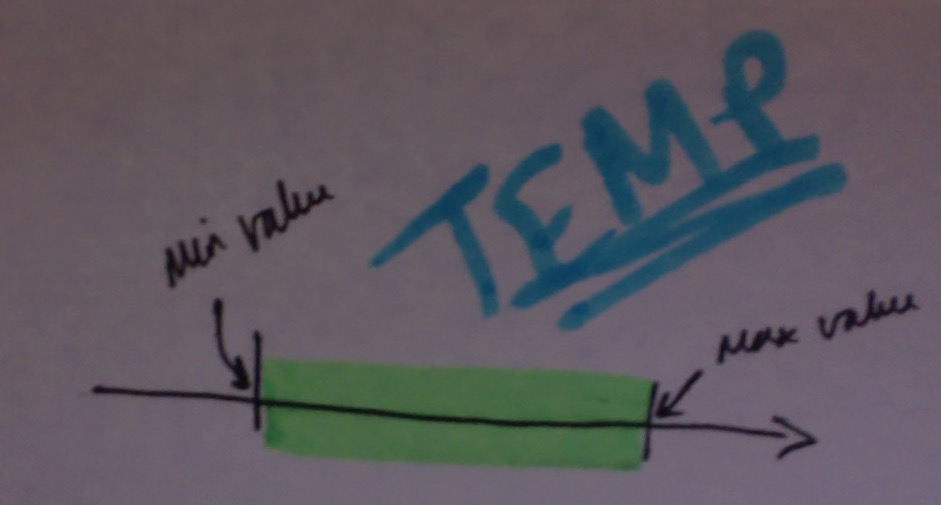 TEMP
Min value
Max value